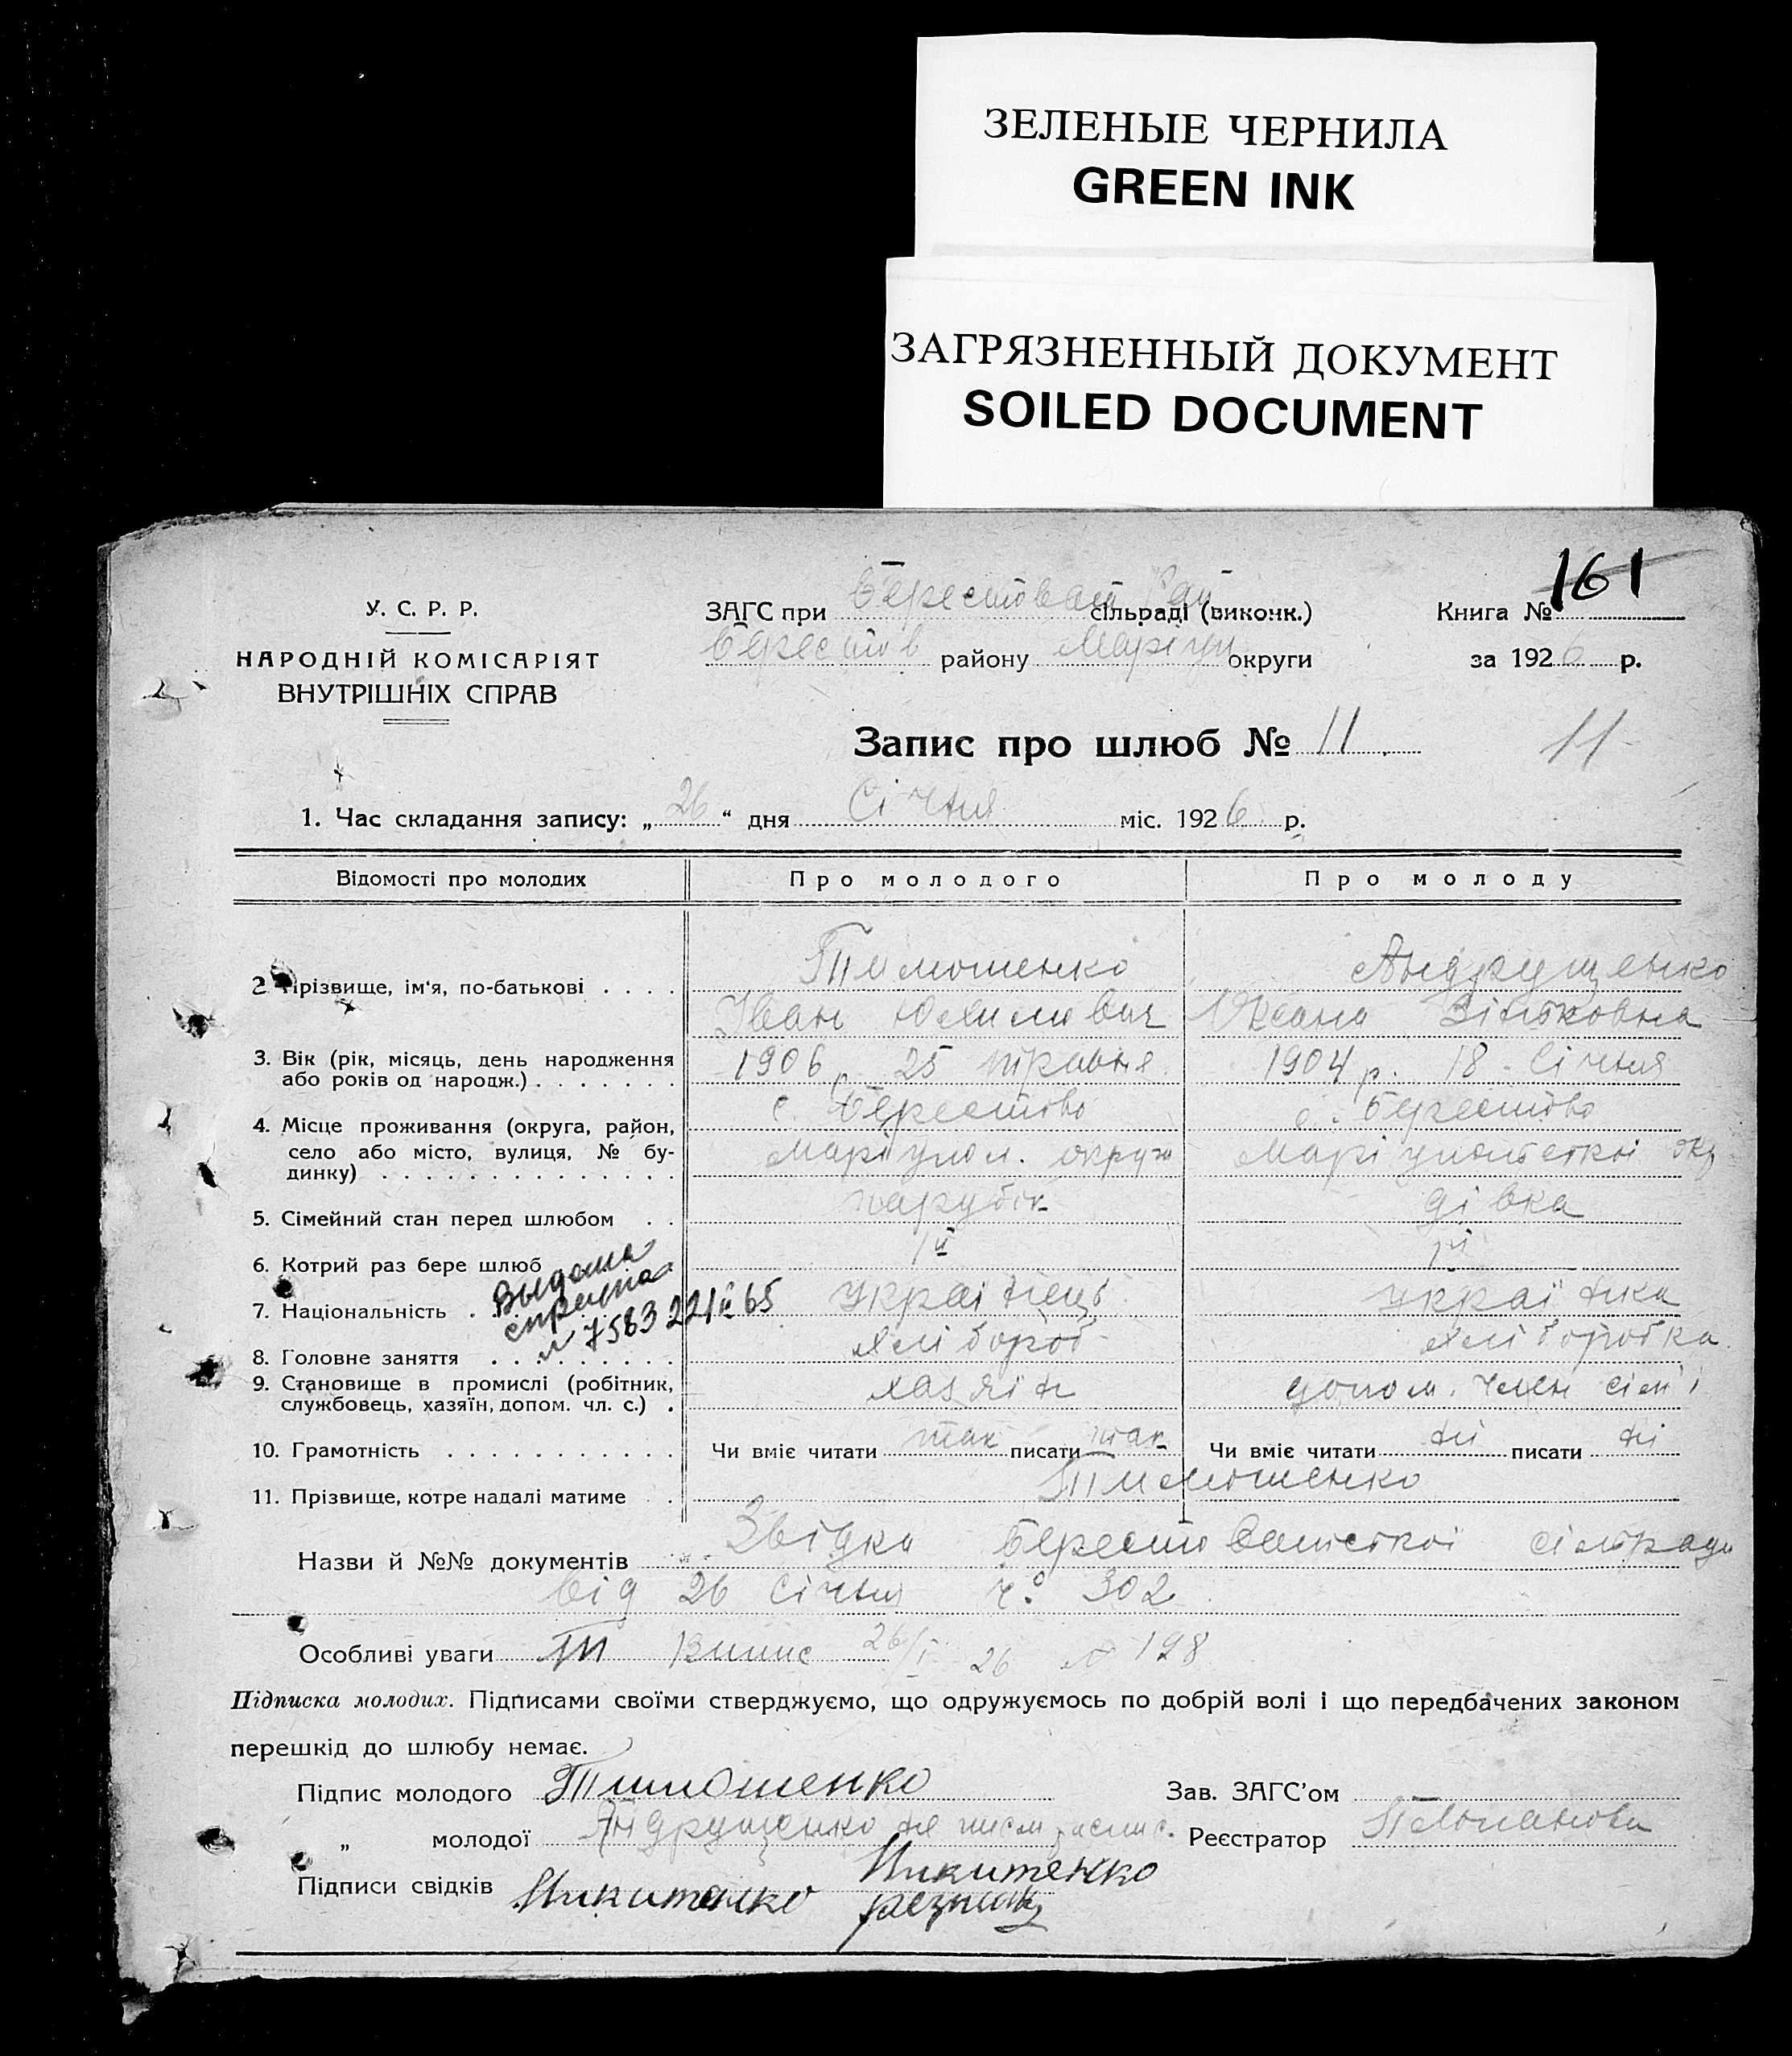 ЗЕЛЕНЫЕ ЧЕРНИЛА
GREEN INK
ЗАГРЯЗНЕННЫЙ ДОКУМЕНТ
SOILED DOCUMENT
161
У. С. Р. Р.
НАРОДНІЙ КОМІСАРІЯТ
ВНУТРІШНІХ СПРАВ
ЗАГС при Берестован Рай сільраді (виконк.)
Берестов району Маріуп округи
Книга №
за 1926 р.
Запис про шлюб № 11.
11
1. Час складання запису: „26“ дня Січня міс. 1926 р.
Відомості про молодих Про молодого Про молоду
2. Прізвище, ім'я, по-батькові . . . . Тимошенко Андрущенко
Іван Юхимович Оксана Зіньковна
3. Вік (рік, місяць, день народження або років од народж.) . . . . . . . 1906 р. 25 травня 1904 р. 18 Січня
4. Місце проживання (округа, район, село або місто, вулиця, № будинку) . . . . . . . . . . . . . . с. Берестово с. Берестово
Маріупол. округи Маріупольської окр
5. Сімейний стан перед шлюбом . . парубок дівка
6. Котрий раз бере шлюб 1й 1й
7. Національність . Українець українка
Выдана
справка
№ 7583 22/II 65
8. Головне заняття . . . . . . . . . хлібороб хліборобка
9. Становище в промислі (робітник, службовець, хазяїн, допом. чл. с.) . хазяїн допом. член сім'ї
10. Грамотність . . . . . . . . . . . Чи вміє читати так писати так Чи вміє читати ні писати ні
11. Прізвище, котре надалі матиме . . Тимошенко
Назви й №№ документів Звідка Берестованської сільради
від 26 Січня ч. 302
Особливі уваги Випис 26/I 26 № 198
Підписка молодих. Підписами своїми стверджуємо, що одружуємось по добрій волі і що передбачених законом
перешкід до шлюбу немає.
Підпис молодого Тимошенко Зав. ЗАГС'ом
„ молодої Андрущенко не писм Реєстратор
Підписи свідків Никитенко Никитенко